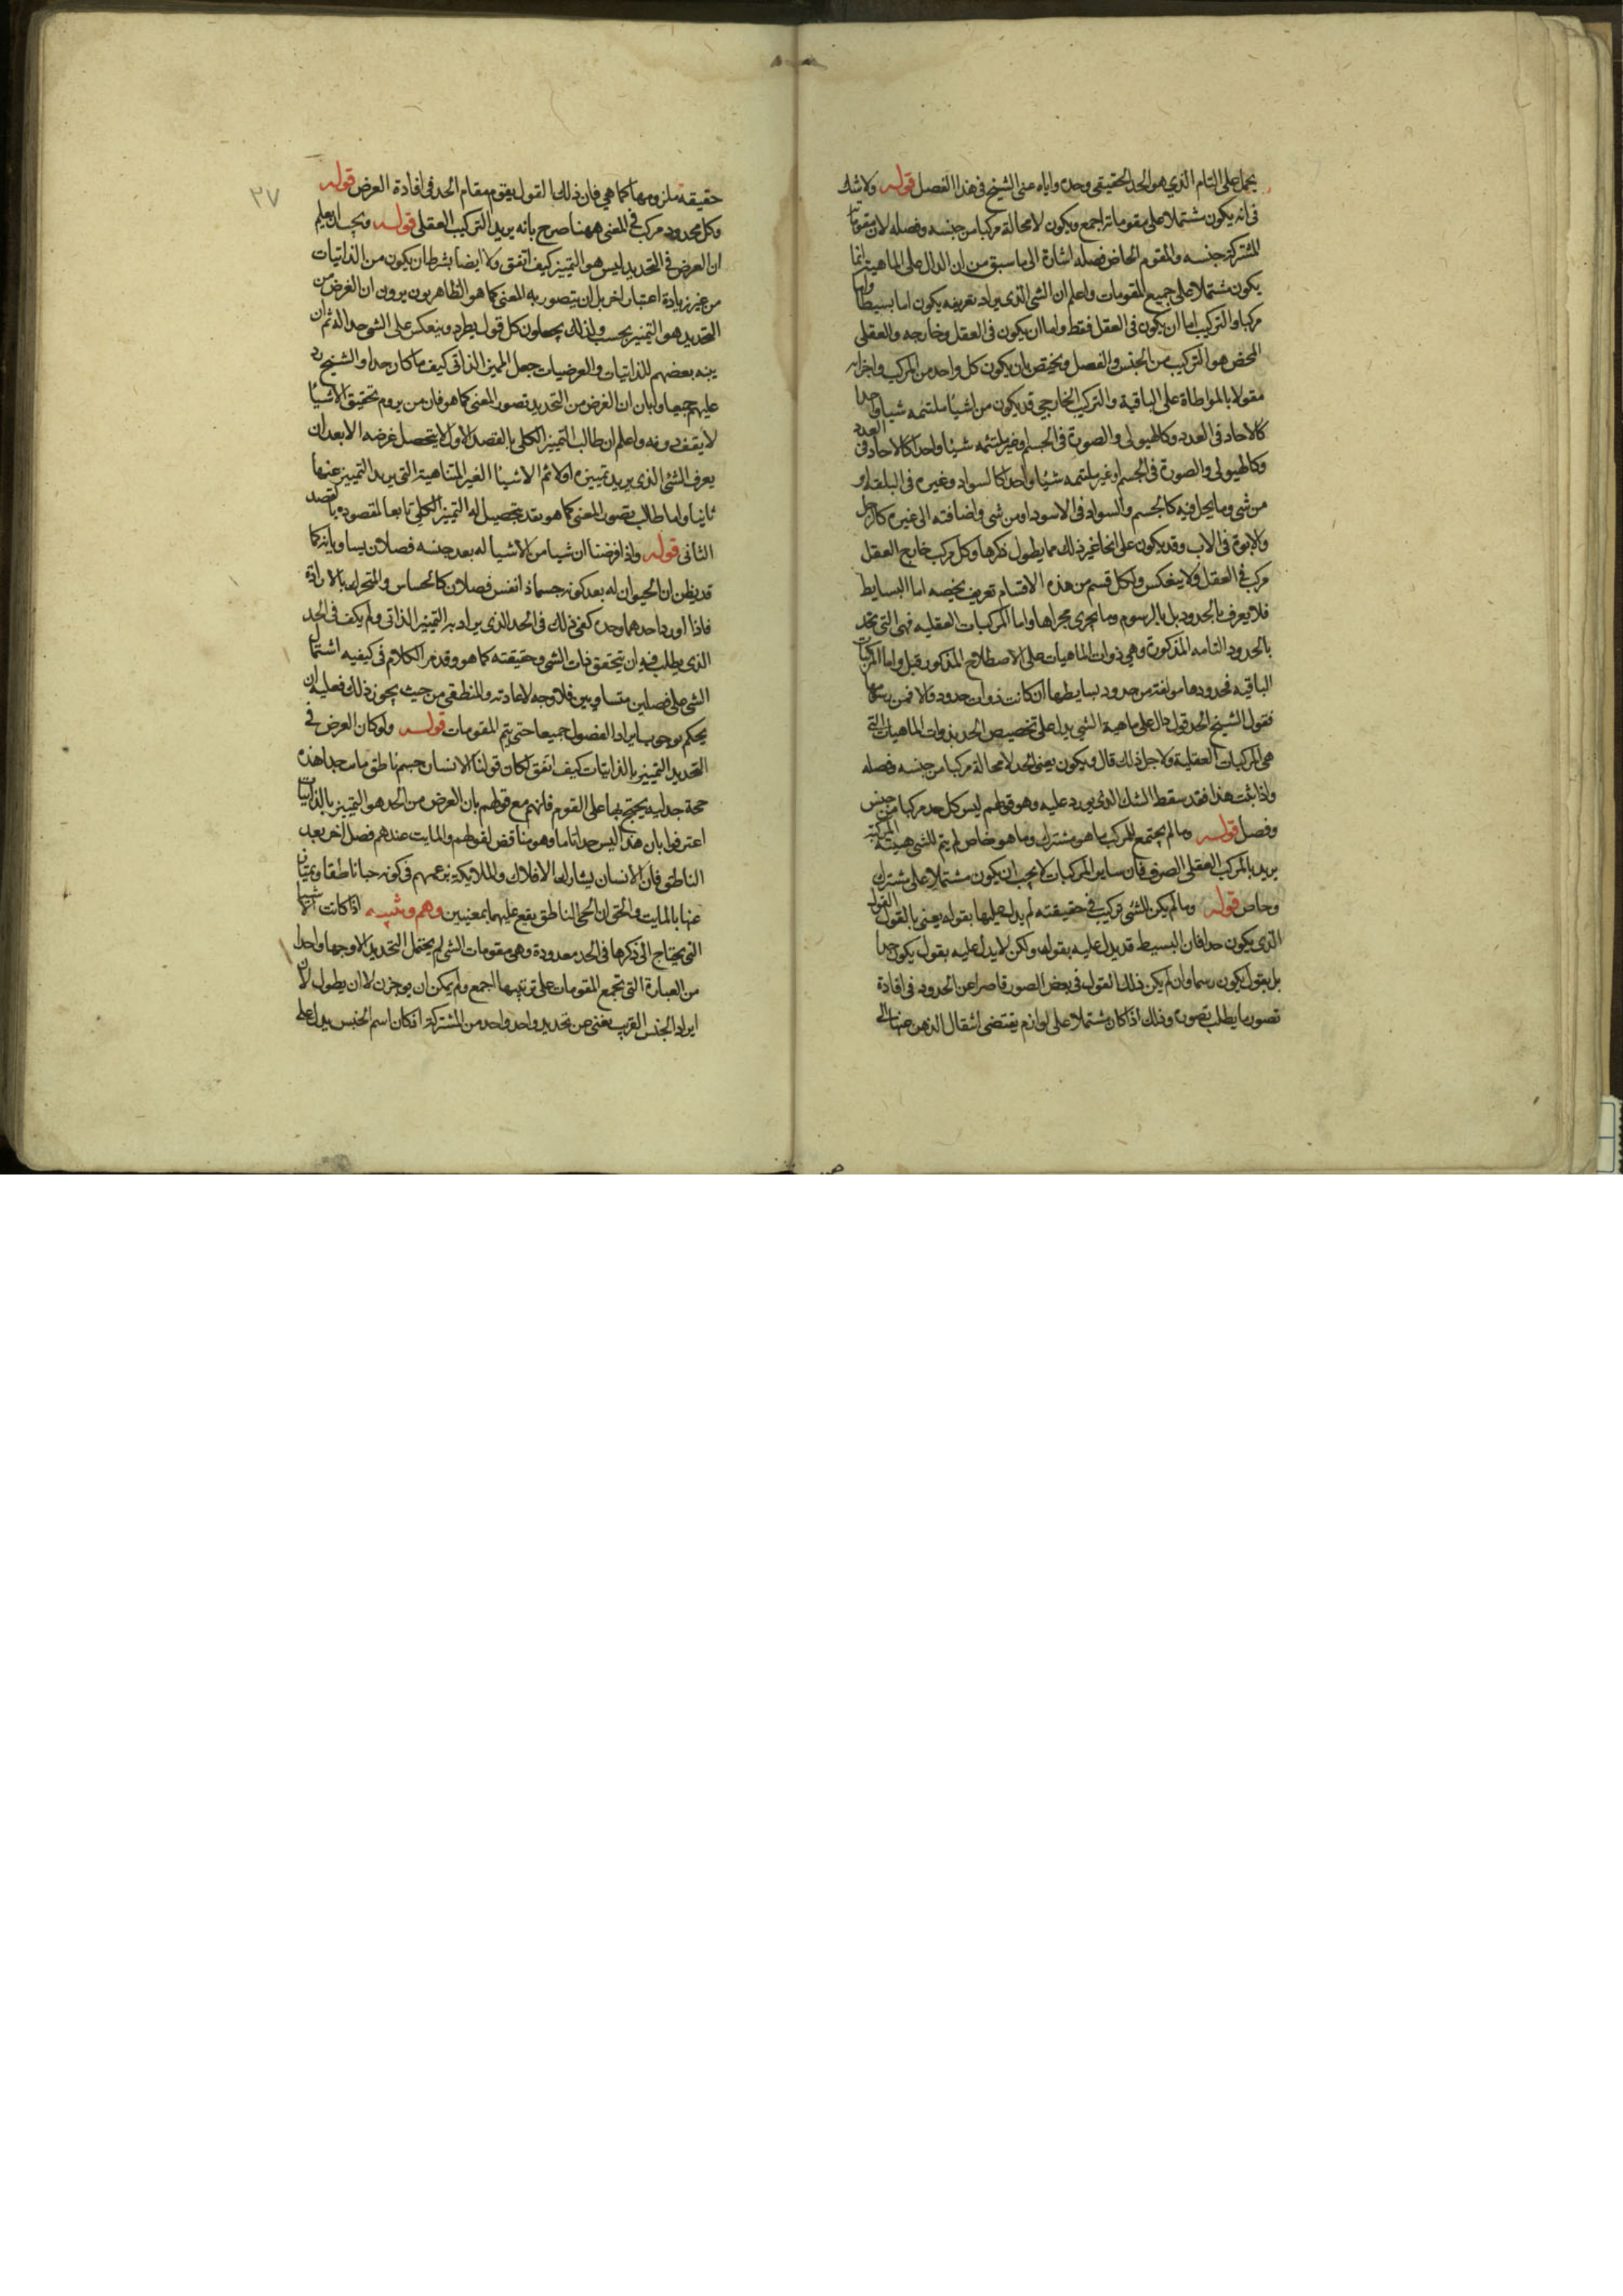 يحمل على التام الذي هو الحد الحقيقي وحده واياه عنى الشيخ في هذا الفصل قوله ولا شك
في انه يكون مشتملا على مقوماته اجمع ويكون لا محالة مركبا من جنسه وفصله لان مقوماته
المشتركة جنسه والمقوم الخاص فصله اشارة الى ما سبق من ان الدال على الماهية انما
يكون مشتملا على جميع المقومات واعلم ان الشي الذي يراد تعريفه يكون اما بسيطا واما
مركبا والتركيب اما ان يكون في العقل فقط واما ان يكون في العقل وخارجه والعقلي
المحض هو التركيب من الجنس والفصل ويختص بان يكون كل واحد من المركب واجزائه
مقولا بالمواطاة على الباقية والتركيب الخارجي قد يكون من اشيا ملتئمه شيا واحدا
كالاحاد في العدد وكالهيولى والصورة في الجسم او غير ملتئمه شيئا واحدا كالاحاد في العدد
وكالهيولى والصورة في الجسم او غير ملتئمه شيئا واحدا كالسواد وغيره في البلقة او
من شي وما يحل فيه كالجسم والسواد في الاسود او من شي واضافته الى غيره كالرجل
والابوة في الاب وقد يكون على انحا غير ذلك مما يطول ذكرها وكل مركب خارج العقل
مركب في العقل ولا ينعكس ولكل قسم من هذه الاقسام تعريف يخصه اما البسايط
فلا يعرف بالحدود بل بالرسوم وما يجري مجراها واما المركبات العقليه فهي التي تحد
بالحدود التامه المذكورة وهي ذوات الماهيات على الاصطلاح المذكور قبل واما المركبات
الباقيه فحدودها مولفة من حدود بسايطها ان كانت ذوات حدود والا فمن رسومها
فقول الشيخ الحد قول دال على ماهية الشي يدل على تخصيص الحد بذوات الماهيات التي
هي المركبات العقلية ولاجل ذلك قال ويكون يعني الحد لا محالة مركبا من جنسه وفصله
واذا ثبت هذا فقد سقط الشك الذي يورد عليه وهو قولهم ليس كل حد مركبا من جنس
وفصل قوله وما لم يجتمع للمركب ما هو مشترك وما هو خاص لم يتم للشي حقيقته المركبة
يريد بالمركب العقلي الصرف فان ساير المركبات لا يجب ان يكون مشتملا على مشترك
وخاص قوله وما لم يكن للشي تركيب في حقيقته لم يدل عليها بقوله يعني بالقول القول
الذي يكون حدا فان البسيط قد يدل عليه بقول ولكن لا يدل عليه بقول يكون حدا
بل بقول يكون رسما وان لم يكن ذلك القول في بعض الصور قاصرا عن الحدود في افادة
تصور ما يطلب تصوره وذلك اذا كان مشتملا على لوازم يقتضى انتقال الذهن عنها الى
٢٧
حقيقة ملزومها كما هي فان ذلك القول يقوم مقام الحد في افادة الغرض قوله
وكل محدود مركب في المعنى ههنا صرح بانه يريد التركيب العقلي قوله ويجب ان يعلم
ان الغرض في التحديد ليس هو التمييز كيف اتفق ولا ايضا بشرط ان يكون من الذاتيات
من غير زيادة اعتبار اخر بل ان يتصور به المعنى كما هو الظاهريون يرون ان الغرض من
التحديد هو التمييز بحسب ولذلك يجعلون كل قول يطرد وينعكس على الشي حدا له ثم ان
ينبه بعضهم للذاتيات والعرضيات جعل المميز الذاتي كيف ما كان حدا والشيخ رد
عليهم جميعا وابان ان الغرض من التحديد تصور المعنى كما هو فان من يروم تحقيق الاشيا
لا يقف دونه واعلم ان طالب التمييز الكلي بالقصد الاول لا يتحصل غرضه الا بعد ان
يعرف الشي الذي يريد تمييزه اولا ثم الاشيا الغير المتناهية التي يريد التمييز عنها
ثانيا واما طالب تصور المعنى كما هو فقد يتحصل له التمييز الكلي تابعا لمقصوده بالقصد
الثاني قوله واذا فرضنا ان شيا من الاشيا له بعد جنسه فصلان يساويانه كما
قد يظن ان الحيوان له بعد كونه جسما ذا نفس فصلان كالحساس والمتحرك بالارادة
فاذا اورد احدهما وحده كفى ذلك في الحد الذي يراد به التمييز الذاتي ولم يكف في الحد
الذي يطلب فيه ان يتحقق ذات الشي وحقيقته كما هو وقد مر الكلام في كيفيه اشتمال
الشي على فصلين متساويين فلا وجه لاعادته والمنطقي من حيث يجوز ذلك فعليه ان
يحكم بوجوب ايراد الفصول جميعا حتى يتم المقومات قوله ولو كان الغرض في
التحديد التمييز بالذاتيات كيف اتفق لكان قولنا الانسان جسم ناطق مايت حدا هذه
حجة جدليه يحتج بها على القوم فانهم مع قولهم بان الغرض من الحد هو التمييز بالذاتيات
اعترفوا بان هذا ليس حدا تاما وهو مناقض لقولهم والمايت عندهم فصل اخر بعد
الناطق فان الانسان يشاركه الافلاك والملايكة بزعمهم في كونه حيا ناطقا ويمتاز
عنها بالمايت والحق ان الحي الناطق يقع عليهما بمعنيين وهم وتنبيه اذا كانت الاشيا
التي يحتاج الى ذكرها في الحد معدودة وهي مقومات الشي لم يحتمل التحديد الا وجها واحدا
من العبارة التي تجمع المقومات على ترتيبها اجمع ولم يمكن ان يوجز ولا ان يطول لان
ايراد الجنس القريب يغني عن تحديد واحد واحد من المشتركة اذ كان اسم الجنس يدل على